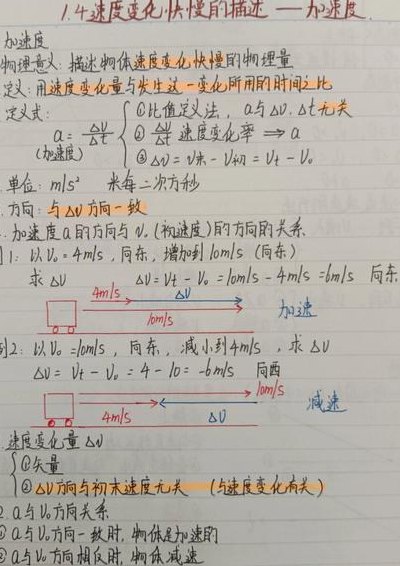 1.4 速度变化快慢的描述 — 加速度
加速度
物理意义: 描述物体速度变化快慢的物理量
定义: 用速度变化量与发生这一变化所用的时间之比
定义式:
a = Δv/Δt
(加速度)
①比值定义法, a与Δv.Δt无关
② Δv/Δt 速度变化率 ⇒ a
③Δv = v末 - v初 = Vt - V₀
单位: m/s² 米每二次方秒
方向: 与Δv方向一致
加速度a的方向与v.(初速度)的方向的关系
例1: 以V₀ = 4m/s, 向东, 增加到10m/s (向东)
求 Δv Δv = Vt - V₀ = 10m/s - 4m/s = 6m/s 向东
4m/s Δv
10m/s 加速
例2: 以V₀ = 10m/s, 向东, 减小到4m/s, 求Δv
Δv = Vt - V₀ = 4 - 10 = -6m/s 向西
10m/s
4m/s Δv 减速
速度变化量Δv
①矢量
②Δv方向与初末速度无关 (与速度变化有关)
2. a与V₀方向关系
①a与V₀方向一致时, 物体是加速的
②a与V₀方向相反时, 物体减速